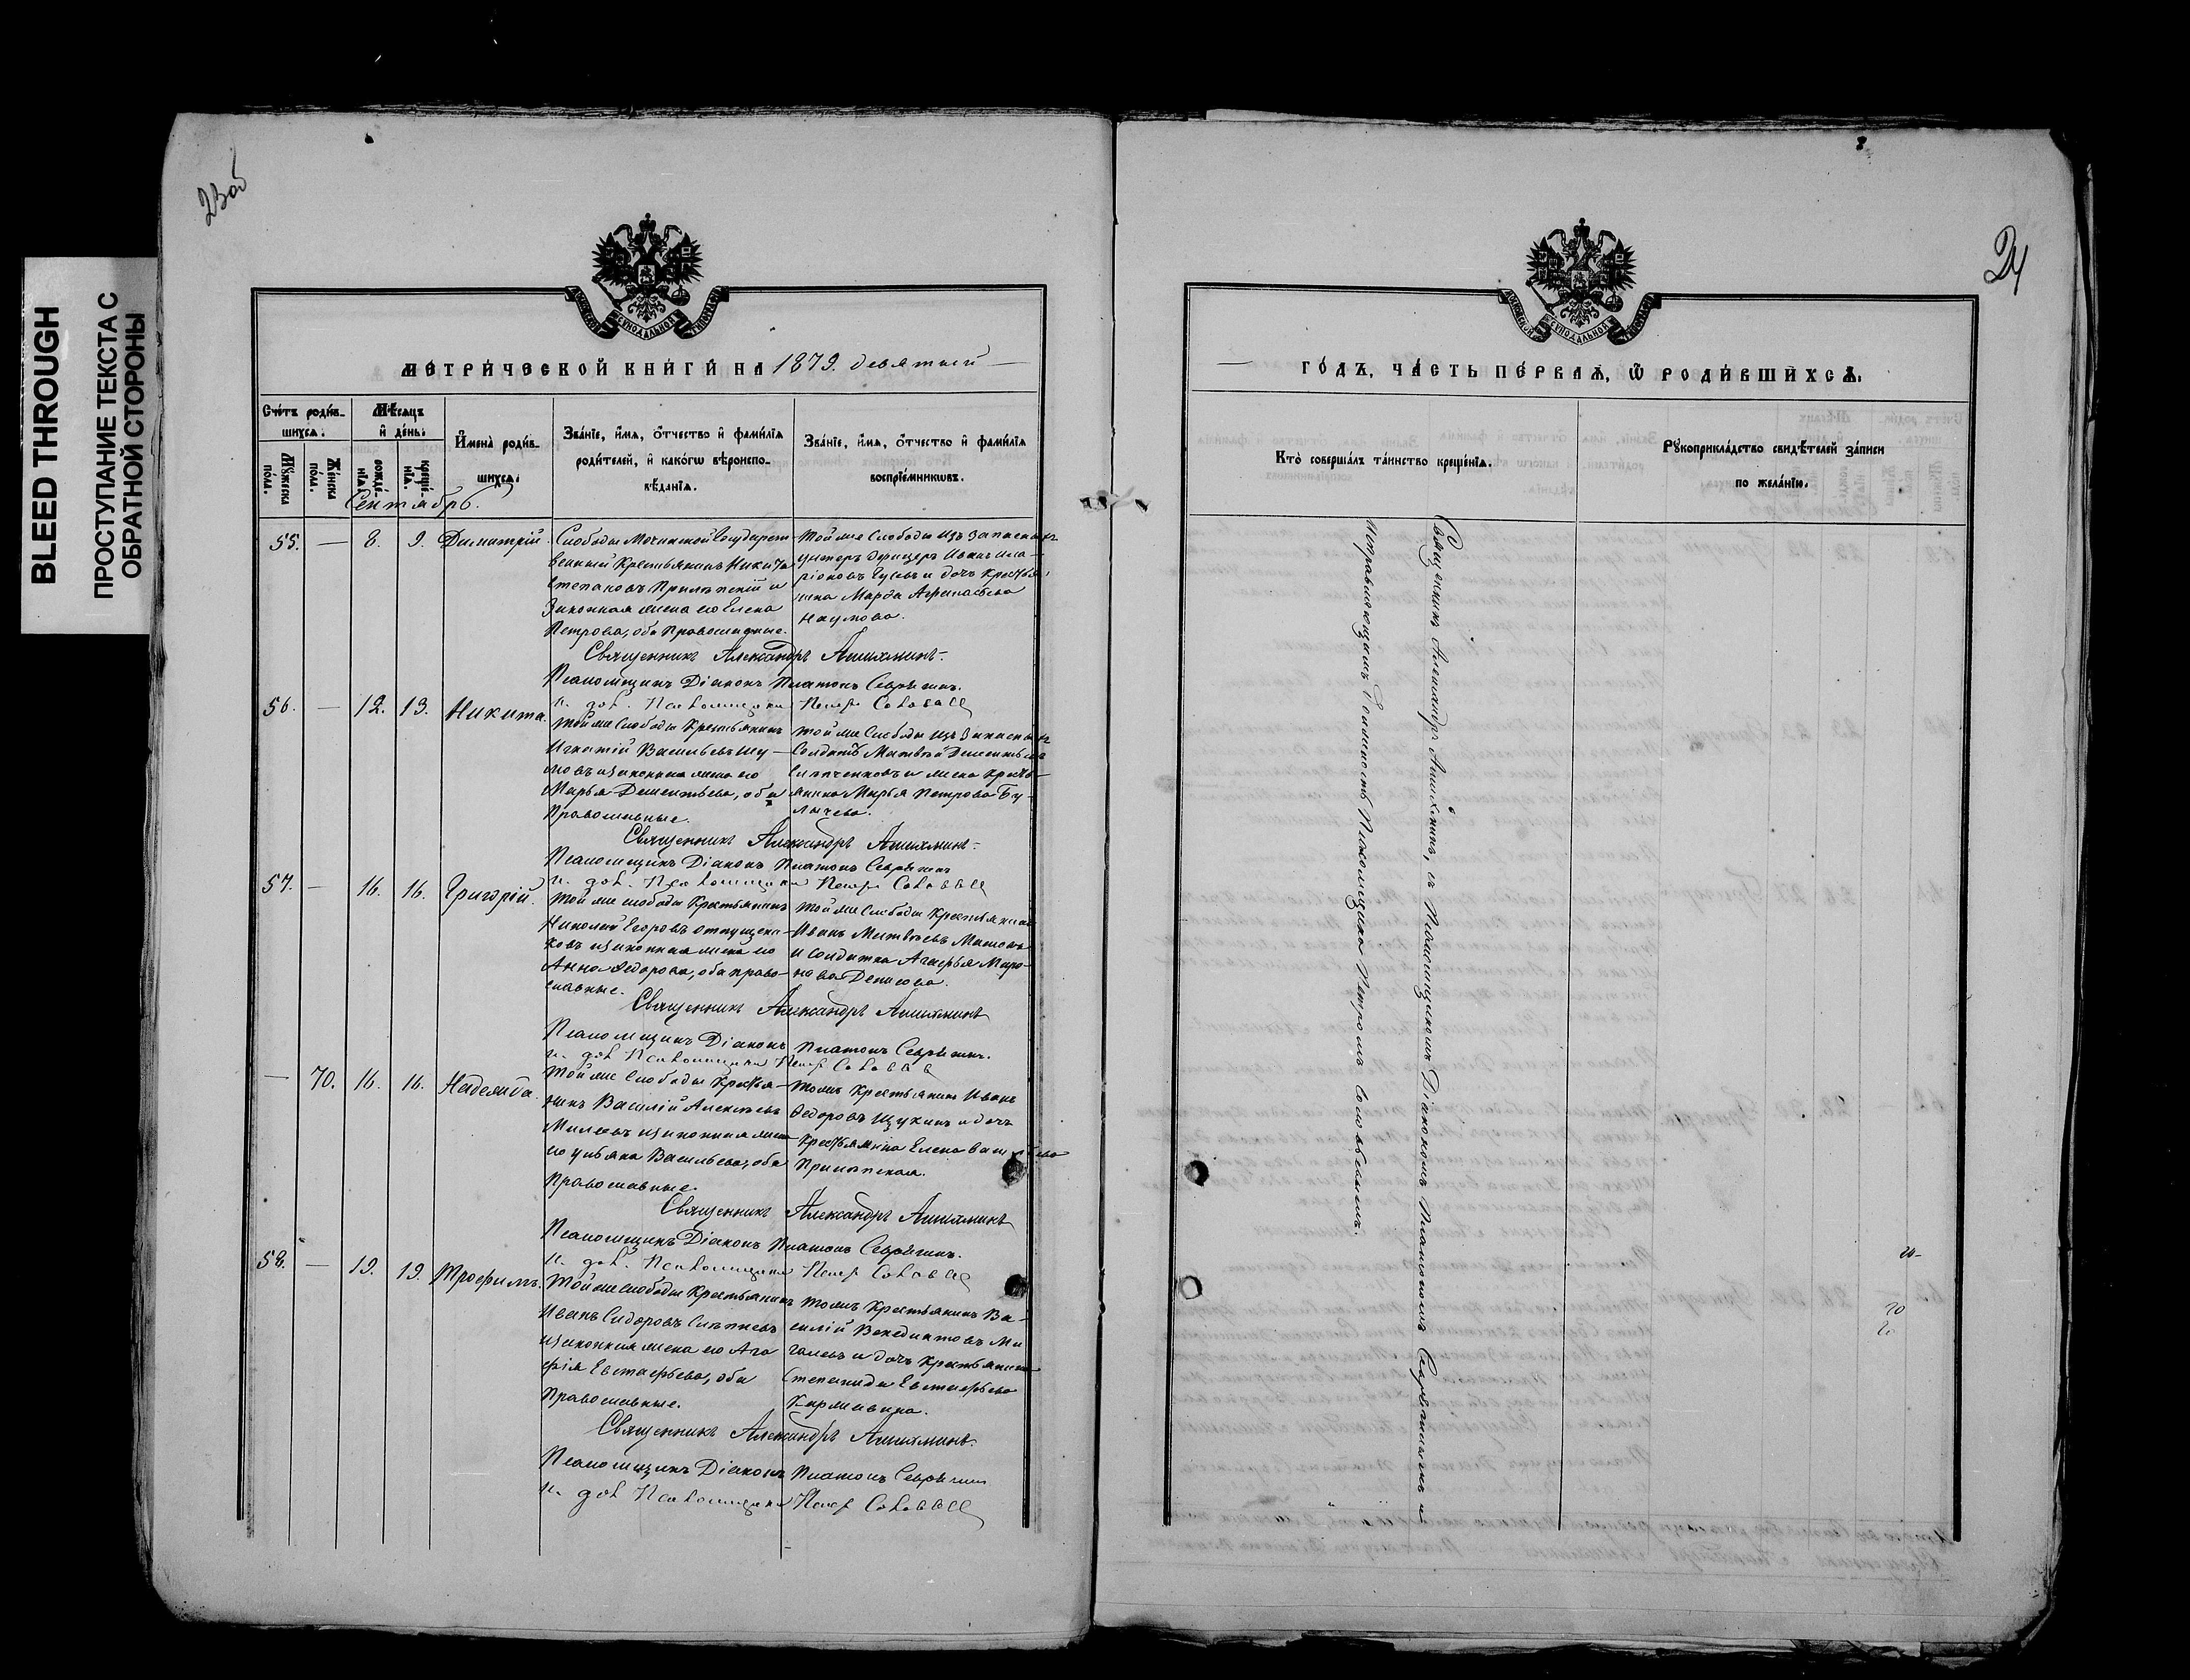 BLEED THROUGH
ПРОСТУПАНИЕ ТЕКСТА С
ОБРАТНОЙ СТОРОНЫ
23об
МЕТРИ́ЧЕСКОЙ КНИ́ГИ НА 1879. девятый
Сче́тъ роди́в-
шихсѧ.
Мѣ́сѧцъ
и҆ де́нь.
И҆мена̀ роди́в-
шихсѧ.
Зва́нїе, и҆́мѧ, ѻ҆́тчество и҆ фами́лїѧ
роди́телей, и҆ како́гѡ вѣроиспо-
вѣ́данїѧ.
Зва́нїе, и҆́мѧ, ѻ҆́тчество и҆ фами́лїѧ
воспрїе́мникѡвъ.
Мꙋ́жеска
пол.
Же́нска
пол.
рожде́-
нїѧ
креще́-
нїѧ.
Сентябрь.
55. — 8. 9. Димитрій.
Слободы Мочинской Государст-
венный Крестьянинъ Никита
Степановъ Прилѣпскій и
Законная жена его Елена
Петрова, оба Православные.
Той же Слободы изъ запасныхъ
унтеръ Офицеръ Иванъ Ила-
ріоновъ Гусевъ и дочь Крестья-
нина Марѳа Аѳанасьева
Наумова.
Священникъ Александръ
Псаломщикъ Діаконъ Платонъ
и. дол. Псаломщика Петръ Соловьевъ
56. — 12. 13. Никита.
Той же Слободы Крестьянинъ
Игнатій Васильевъ Шу-
мовъ и законная жена его
Марья Дементьева, оба
Православные.
Той же Слободы изъ Запасныхъ
Солдатъ Матвѣй Дементьевъ
и жена Кресть-
янина Марья Петрова Бу-
лычева.
Священникъ Александръ
Псаломщикъ Діаконъ Платонъ
и. дол. Псаломщика Петръ Соловьевъ
57. — 16. 16. Григорій.
Той же слободы Крестьянинъ
Николай Егоровъ Отпущен-
ковъ и законная жена его
Анна Ѳедорова, оба право-
славные.
Той же Слободы Крестьянинъ
Иванъ Матвѣевъ
и солдатка Агафья Миро-
нова Денисова.
Священникъ Александръ
Псаломщикъ Діаконъ Платонъ
и. дол. Псаломщика Петръ Соловьевъ
— 70. 16. 16. Надежда.
Той же Слободы Крестья-
нинъ Василій Алексѣевъ
Милевъ и законная жена
его Ульяна Васильева, оба
Православные.
Тожъ Крестьянинъ Иванъ
Ѳедоровъ Щукинъ и дочь
Крестьянина Елена Васильева
Прилѣпская.
Священникъ Александръ
Псаломщикъ Діаконъ Платонъ
и. дол. Псаломщика Петръ Соловьевъ
58. — 19. 19. Трофимъ.
Той же слободы Крестьянинъ
Иванъ Сидоровъ Слѣпневъ
и законная жена его Ага-
фія Евстафьева, оба
Православные.
Тожъ Крестьянинъ Ва-
силій Венедиктовъ Ми
галевъ и дочь Крестьянина
Степанида Евстафьева
Кармавина.
Священникъ Александръ
Псаломщикъ Діаконъ Платонъ
и. дол. Псаломщика Петръ Соловьевъ
24
ГО́ДЪ, ЧА́СТЬ ПЕ́РВАѦ, Ѡ҆ РОДИ́ВШИХСѦ.
Кто̀ соверша́лъ та́инство креще́нїѧ.
Рꙋкоприкла́дство свидѣ́телей за́писи
по жела́нїю.
Священникъ Александръ съ Псаломщикомъ Діакономъ Платономъ и
Исправляющимъ должность Псаломщика Петромъ Соловьевымъ.